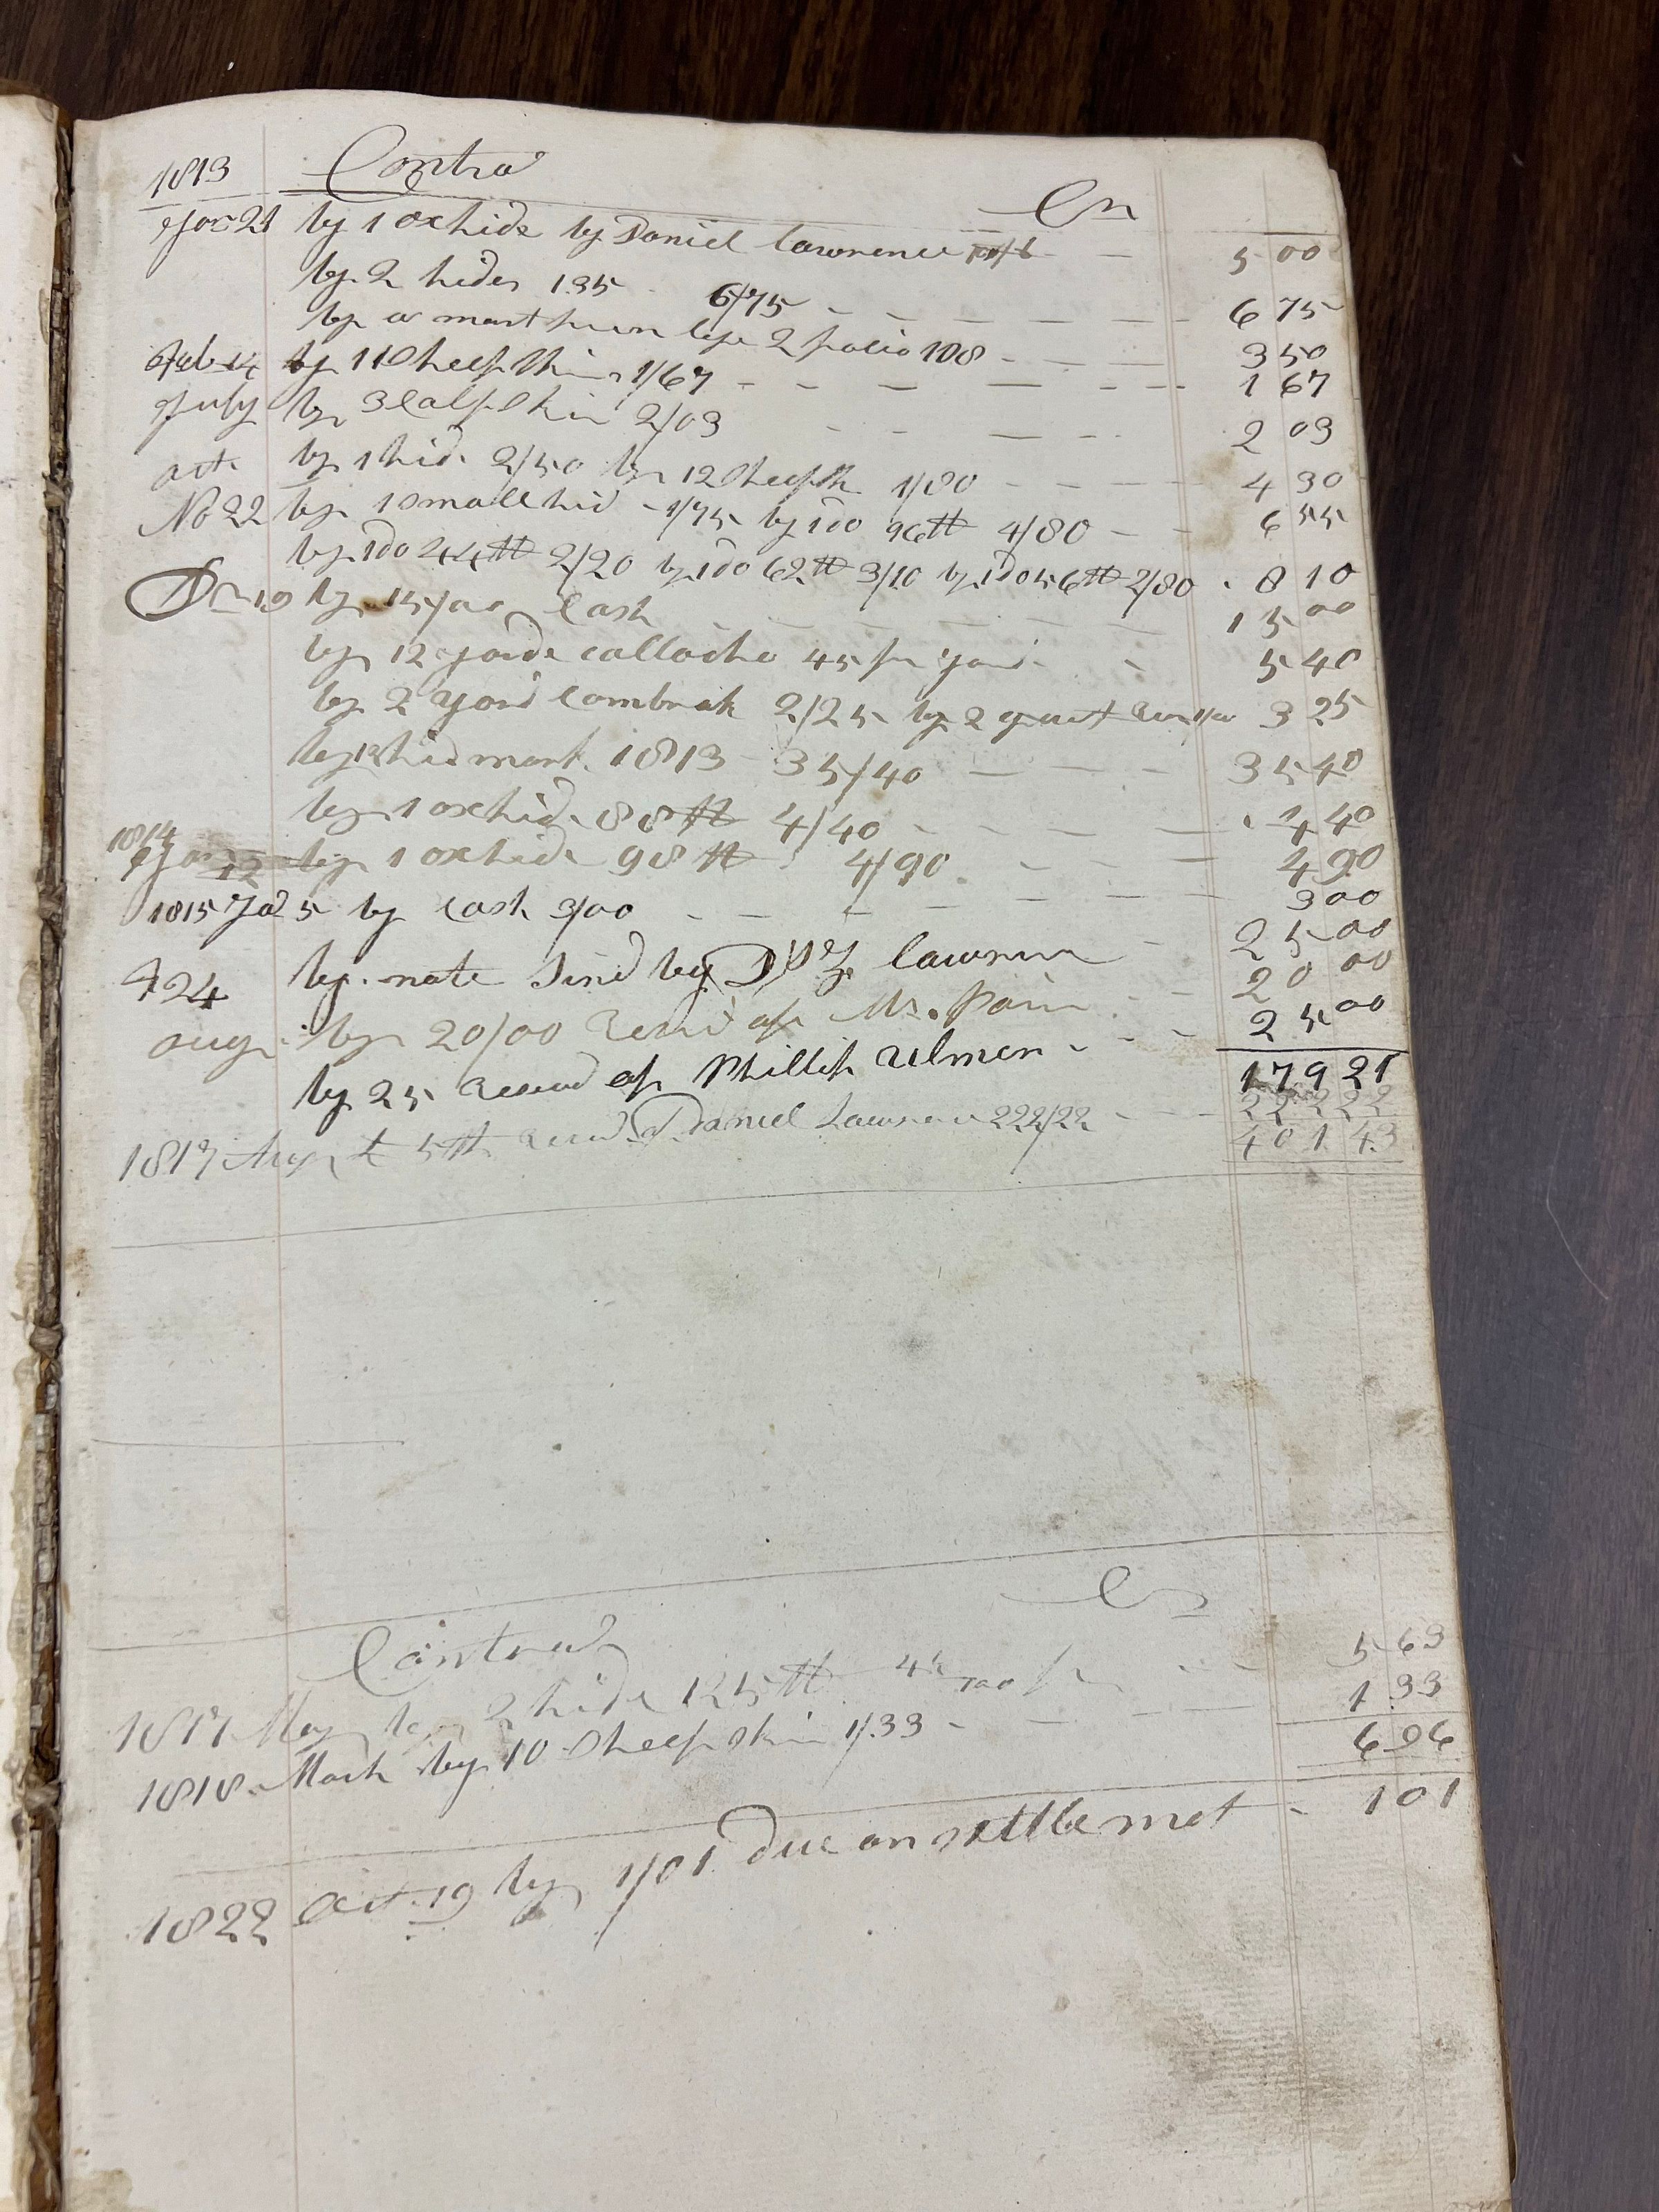 1813 Contra Cr
Jan 21 by 1 oxhide by Daniel Lawrence 5 00
by 2 hides 135 6/75 6 75
by a folio 108 3 50
Feb 14 by 11 Sheepskins 1/67 1 67
July by 3 Calfskin 2/03 2 03
oct by 1 hid 2/50 by 12 Sheepsk 1/80 4 30
No 22 by 1 small hid 1/75 by 1 do 96 lb 4/80 6 55
by 1 do 44 lb 2/20 by 1 do 62 lb 3/10 by 1 do 56 lb 2/80 8 10
by Cash 15 00
by 12 yards 45 pr yard 5 40
by 2 yard Cambrick 2/25 by 2 3 25
by hid 1813 35/40 35 40
by 1 oxhid 88 lb 4/40 4 40
1814
Jan by 1 oxhide 98 lb 4/90 4 90
1815 5 by Cash 3/00 3 00
24 by note Sind by Lawrence 25 00
aug by 20/00 of Mr. 20 00
by 25 of Phillip ulmer 25 00
179 21
1817 5th Daniel Lawrence 222/22 222 22
401 43
Contra Cr
1817 May by 2 hide 125 lb 5 63
1818 March by 10 Sheepskin 1/33 1 33
6 96
1822 Oct 19 by 1/01 due on settlemet 1 01